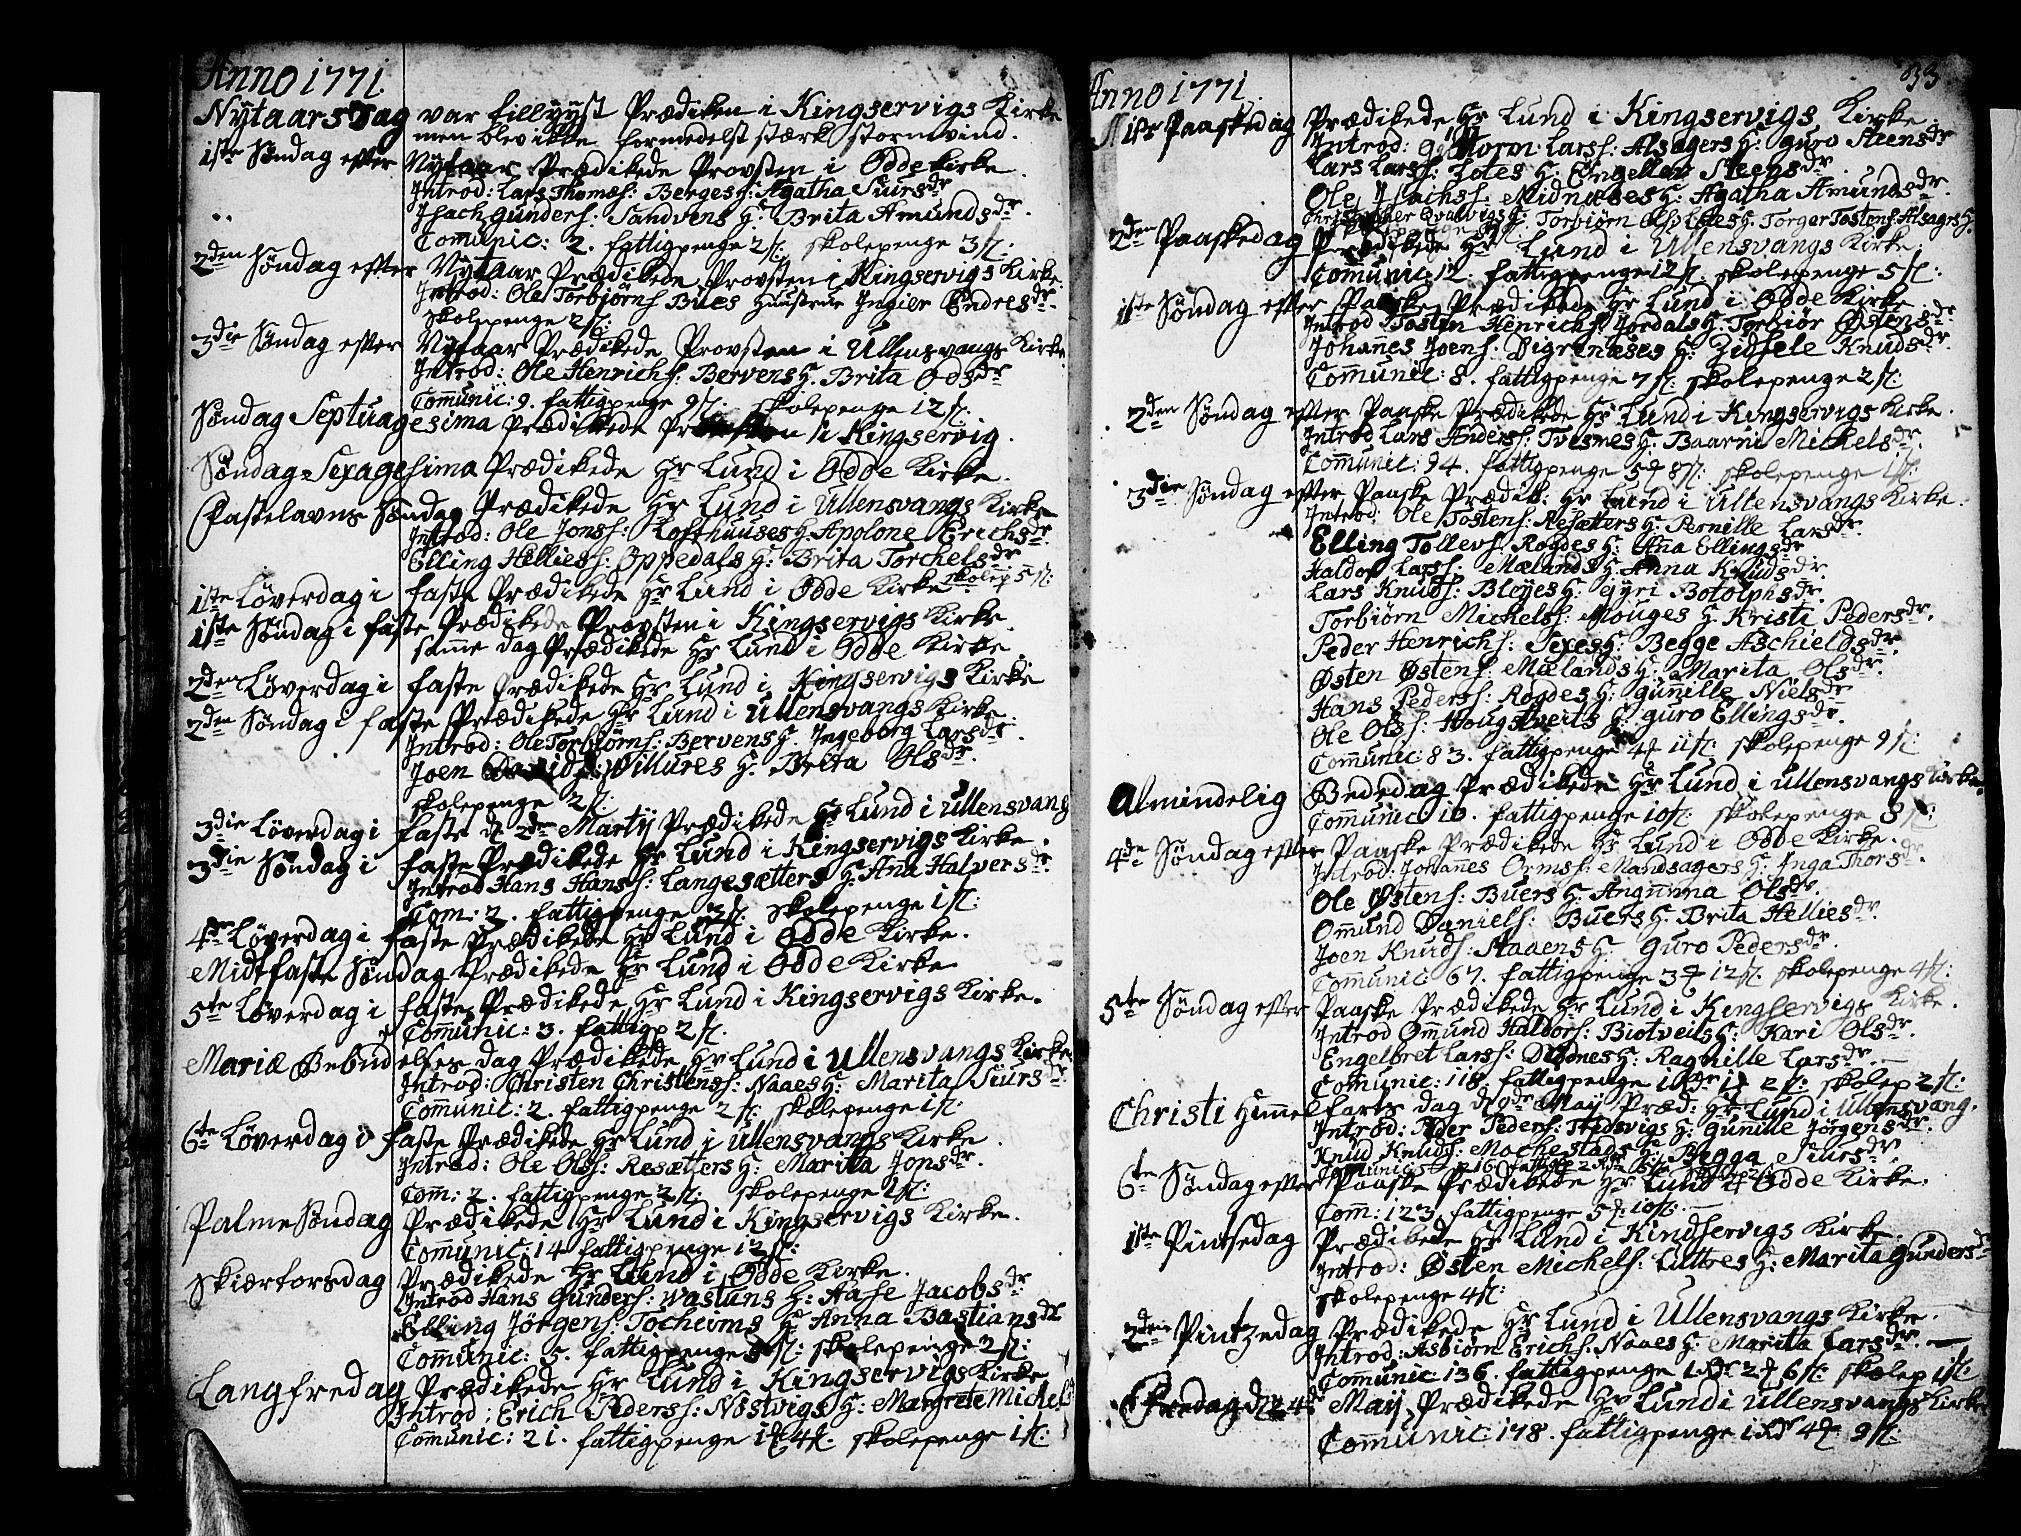 Anno 1771.
Nytaars Dag var tillyyst Prædiken i Kingservigs Kirke
men blev ikke formedelst stærk stormvind.
1ste Søndag efter Nytaar Prædikede Provsten i Odde Kirke
Introd: Lars Thomæs: Berges H: Agatha Siursdr
Isach Gunders: Sandvens H: Brita Amundsdr.
Comunic: 2. fattigpenge 2 s: skolepenge 3 s:
2den Søndag efter Nytaar Prædikede Provsten i Kingservigs Kirke
Introd: Ole Torbjørns Bues Huustrue Ingier Endresdr
skolepenge 2 s:
3die Søndag efter Nytaar Prædikede Provsten i Ullensvangs Kirke
Introd: Ole Henrichs: Bervens H. Brita Odsdr
Comunic: 9. fattigpenge 9 s: skolepenge 12 s:
Søndag Septuagesima Prædikede Provsten i Kingservig.
Søndag Sexagesima Prædikede Hr Lund i Odde Kirke.
Fastelavns Søndag Prædikede Hr Lund i Ullensvangs Kirke
Introd: Ole Jonss: Lofthuuses H. Apolone Erichsdr.
Elling Helliess: Oppedals H: Brita Torchelsdr
1ste Løverdag i faste Prædikede Hr Lund i Odde Kirke skolep 5 s:
1ste Søndag i faste Prædikede Provsten i Kingservigs Kirke.
samme dag Prædikede Hr Lund i Odde Kirke.
2den Løverdag i faste Prædikede Hr Lund i Kingservigs Kirke
2den Søndag i faste Prædikede Hr Lund i Ullensvangs Kirke.
Introd: Ole Torbjørns: Bervens H. Ingeborg Larsdr.
Joen Willures H. Brita Olsdr.
skolepenge 2 s:
3die Løverdag i faste d. 2dn Martij Prædikede Hr Lund i Ullensvang
3die Søndag i faste Prædikede Hr Lund i Kingservigs Kirke.
Introd Hans Hanss: Langesætters H: Ana Halversdr.
Com: 2. fattigpenge 2 s: skolepenge 1 s:
4de Løverdag i faste Prædikede Hr Lund i Odde Kirke.
Midtfaste Søndag Prædikede Hr Lund i Odde Kirke
5te Løverdag i faste Prædikede Hr Lund i Kingservigs Kirke.
Comunic: 3. fattigp 2 s:
Mariæ Bebudelses dag Prædikede Hr Lund i Ullensvangs Kirke.
Introd: Christen Christenss: Naaes H: Marita Siursdr
Comunic: 2. fattigpenge 2 s: skolepenge 1 s:
6te Løverdag i faste Prædikede Hr Lund i Ullensvangs Kirke.
Introd: Ole Olss: Resætters H: Marita Jonsdr.
Com: 2. fattigpenge 2 s: skolepenge 1 s:
Palme Søndag Prædikede Hr Lund i Kingservigs Kirke.
Comunic: 14 fattigpenge 12 s:
Skiærtorsdag Prædikede Hr Lund i Odde Kirke.
Introd Hans Gunders: Vastuns H: Aase Jacobsdr
Elling Jørgens Tocheims H: Anna Bastiansdr
Comunic: 5. fattigpenge s: skolepenge 2 s:
Langfredag Prædikede Hr Lund i Kingservigs Kirke
Introd: Erich Pederss: Nostvigs H: Margrete Michels
Comunic: 21. fattigpenge 1 4 s. skolepenge 1 s:
33
Anno 1771.
1ste Paaskedag Prædikede Hr Lund i Kingservigs Kirke.
Introd: Guttorm Larss: Alsagers H: Guro Steensdr
Lars Larss: Lotes H: Engelleu Steensdr
Ole Isachs: Midnæses H: Agatha Amundsdr.
Christopher Qvalvigs H: Torbiørn Ols: H: Torger Tostens: Alsagers H.
2den Paaskedag Prædikede Hr Lund i Ullensvangs Kirke.
Comunic 12. fattigpenge 12 s: skolepenge 5 s:
1ste Søndag efter Paaske Prædikede Hr Lund i Odde Kirke
Introd Tosten Henrichs: Jordals H: Torbiør Østensdr
Johannes Joens: Digrenæses H: Zidsele Knudsdr.
Comunic: 8. fattigpenge 7 s: skolepenge 2 s:
2den Søndag efter Paaske Prædikede Hr Lund i Kingservigs Kirke.
Introd Lars Anders: Tvesmes H: Baarni Michelsdr.
Comunic: 94. fattigpenge 5 8 s: skolepenge 1 s:
3die Søndag efter Paaske Prædik: Hr Lund i Ullensvangs Kirke.
Introd: Ole Tostens: Resætters H: Pernille Larsdr.
Elling Tollevs: Rogdes H: Ana Ellingsdr
Haldor Larss: Mælands H: Anna Knudsdr.
Lars Knuds: Bleyes H: Gyri Botolphsdr.
Torbiørn Michelss: Mouges H. Kristi Pedersdr.
Peder Henrichs: Sexes H: Begge Aschieldsdr.
Østen Østens: Mælands H: Marita Olsdr.
Hans Pederss: Rogdes H: Gunille Nielsdr
Ole Olss: Hougstveits H: Guro Ellingsdr.
Comunic 83. fattigpenge 4 11 s: skolepenge 9 s:
Almindelig Bededag Prædikede Hr Lund i Ullensvangs Kirke.
Comunic 10. fattigpenge 10 s: skolepenge 3 s:
4de Søndag efter Paaske Prædikede Hr Lund i Odde Kirke.
Introd: Johannes Ormss: Mandsagers H: Inga Thorsdr.
Ole Østens: Buers H: Angunna Olsdr.
Omund Daniels: Buers H: Brita Helliesdr
Joen Knuds: Aaaens H: Guro Pedersdr.
Comunic 67. fattigpenge 3 12 s: skolepenge 4 s:
5te Søndag efter Paaske Prædikede Hr Lund i Kingservigs Kirke.
Introd Omund Haldors: Biotveits H: Kari Olsdr.
Engelbret Larss: H: Ragnille Larsdr.
Comunic: 118. fattigpenge 1 2 s: skolep 2 s:
Christi Himmelfarts dag d. 9de Maij Præd: Hr Lund i Ullensvang.
Introd: Peder Peders: H: Gunille Jørgensdr.
Knud Knuds: Mochestads H: Begga Siursdr.
6te Søndag efter Paaske Prædikede Hr Lund i Odde Kirke.
Com: 123. fattigpenge 5 10 s:
1ste Pintsedag Prædikede Hr Lund i Kindservigs Kirke.
Introd: Østen Michels: Luttres H: Marita Gundersdr
skolepenge 4 s:
2den Pintzedag Prædikede Hr Lund i Ullensvangs Kirke.
Introd: Asbiørn Erichs: Naaes H: Marita Larsdr.
Comunic 136. fattigpenge 1 2 6 s: skolep 1 s:
Fredag d. 24d Maij Prædikede Hr Lund i Ullensvangs Kirke
Comunic 178. fattigpenge 1 4 9 s: